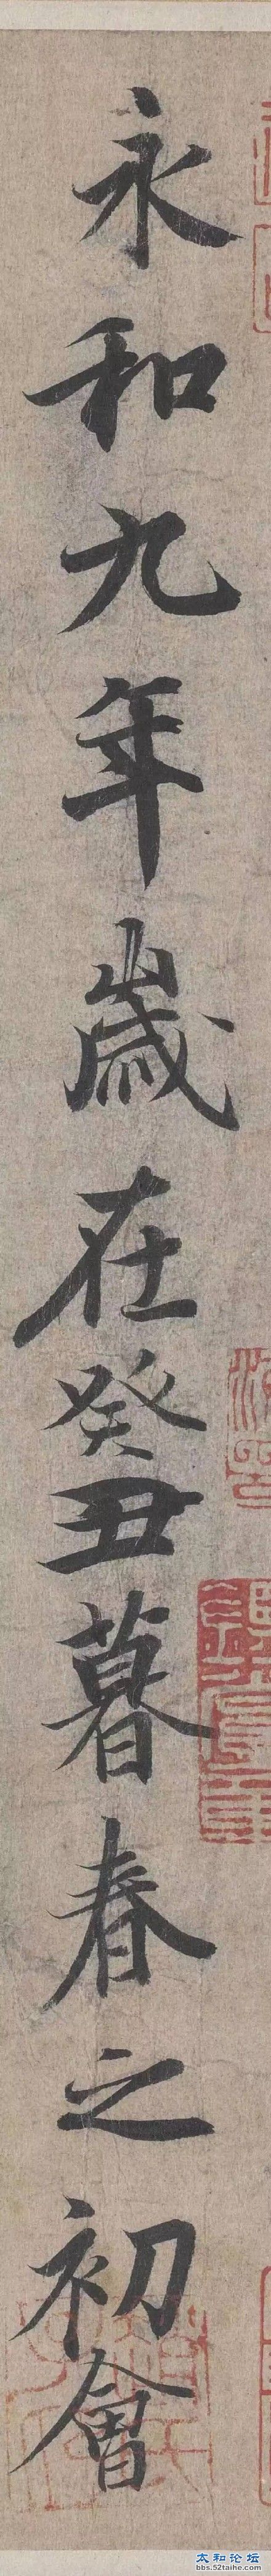 永和九年歲在癸丑暮春之初會
太和论坛
bbs.52taihe.com